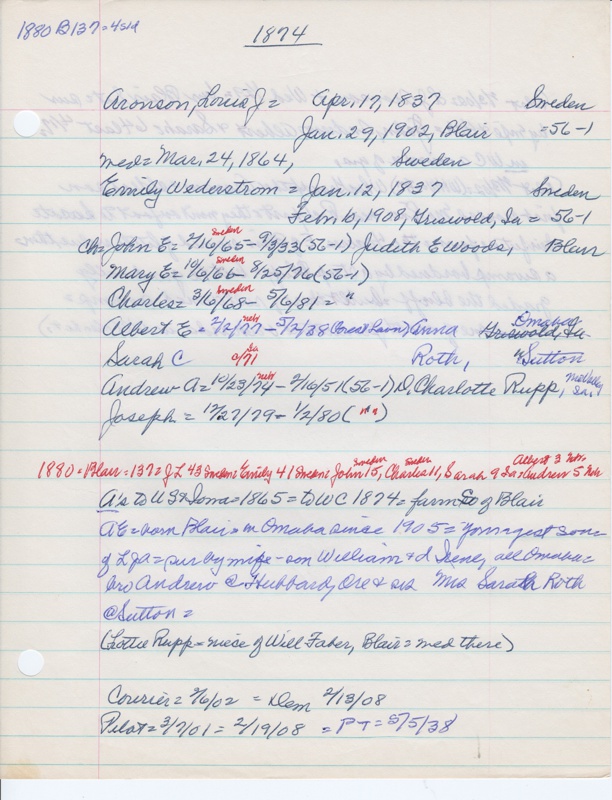 1880 B137=4sld
1874
Aronson, Louis J= Apr. 17, 1837 Sweden
Jan. 29, 1902, Blair =56-1
med= Mar. 24, 1864, Sweden
Emily Wederstrom = Jan. 12, 1837 Sweden
Feb. 6, 1908, Griswold, Ia = 56-1
ch= John E= 2/16/65 Sweden - 9/3/33 (56-1) Judith E Woods, Blair
Mary E= 10/6/66 Sweden - 8/25/76 (56-1)
Charles= 3/6/68 Sweden - 5/6/81 = "
Albert E = 2/2/77 Neb - 5/2/38 (Forest Lawn) Anna Griswold, Ia Omaha
Sarah C c/71 Ia Roth, Sutton
Andrew A= 10/23/74 Neb - 2/16/51 (56-1) D. Charlotte Rupp, Ia.
Joseph = 12/27/79 - 1/2/80 ( )
1880=Blair=137= J L 43 Sweden= Emily 41 Sweden= John 15 Sweden, Charles 11 Sweden, Sarah 9 Ia= Andrew 5 Nebr Albert 3 Nebr.
A's to US & Iowa=1865= to WC 1874= farm SE of Blair
AE=born Blair= in Omaha since 1905= youngest son
of LJA= sur by wife - son William & d Irene, all Omaha=
bro Andrew @ Hubbard, Ore & sis Mrs Sarah Roth
@ Sutton=
(Lottie Rupp= niece of Will Faber, Blair= med there)
Courier= 2/6/02 = Dem 2/13/08
Pilot= 3/7/01= 2/19/08 = PT= 5/5/38